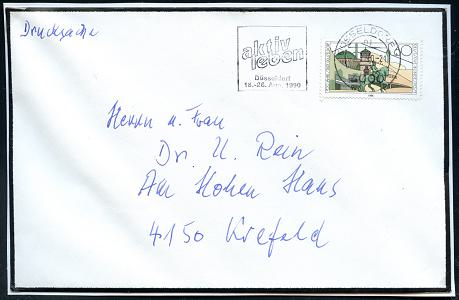 Drucksache
aktiv
leben
Düsseldorf
18.-26. Aug. 1990
60
Herrn u. Frau
Dr. U. Rein
Am Hohen Haus
4150 Krefeld